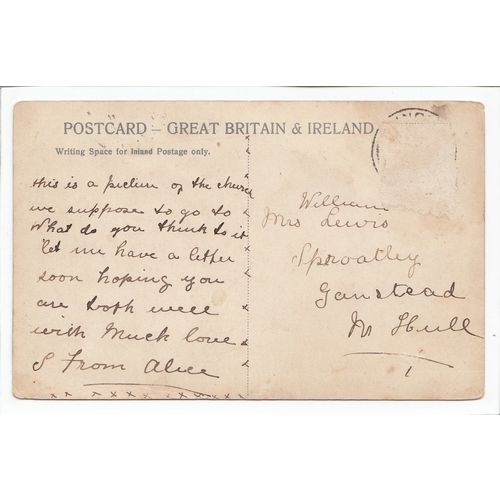 POSTCARD – GREAT BRITAIN & IRELAND
Writing Space for Inland Postage only.
this is a picture of the church
we suppose to go to
What do you think to it
let me have a letter
soon hoping you
are both well
with Much love
From Alice
x x x x x x x x x
William
Mrs Lewis
Sproatley
Ganstead
Nr Hull